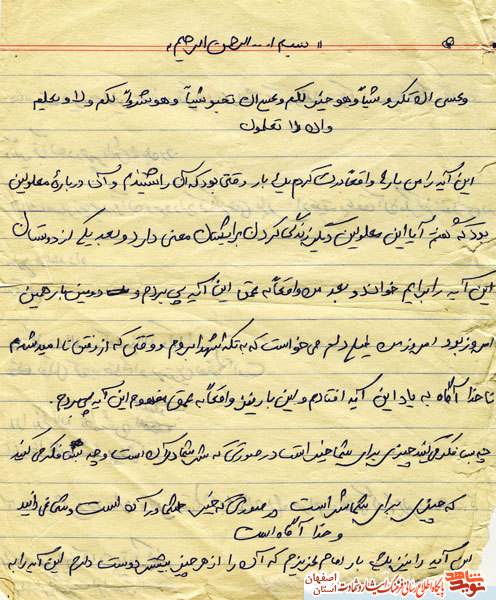 بسم الله الرحمن الرحیم
و عسی ان تکرهو شیاً و هو خیر لکم و عسی ان تحبو شیاً و هو شر لکم و الله یعلم
و انتم لا تعلمون
این آیه را من بارها واقعاً درک کردم یک بار وقتی بود که آن را شنیدم و آن درباره معلولین
بود که گفتم آیا این معلولین دیگر زندگی کردن برایشان معنی دارد و بعد یکی از دوستان
این آیه را برایم خواند و بعد من واقعاً به عمق این آیه پی بردم و دومین بار همین
امروز بود امروز من خیلی دلم می خواست که به تکه شهدا بروم و وقتی که از رفتن نا امید شدم
ناخدا آگاه به یاد این آیه افتادم و این بار نیز واقعاً به عمق مفهوم این آیه پی بردم.
چه بسا فکر می کنید چیزی برای شما خیر است در صورتی که شر شما در آن است و چه بسا فکر می کنید
که چیزی برای شما شر است در صورتی که خیر شما در آن است و شما نمی دانید
و خدا آگاه است
این آیه را نیز یک بار امام عزیزم که آن را از هر چیز بیشتر دوست دارم این آیه را به
نوید شاهد
پایگاه اطلاع رسانی فرهنگ ایثار و شهادت
استان اصفهان